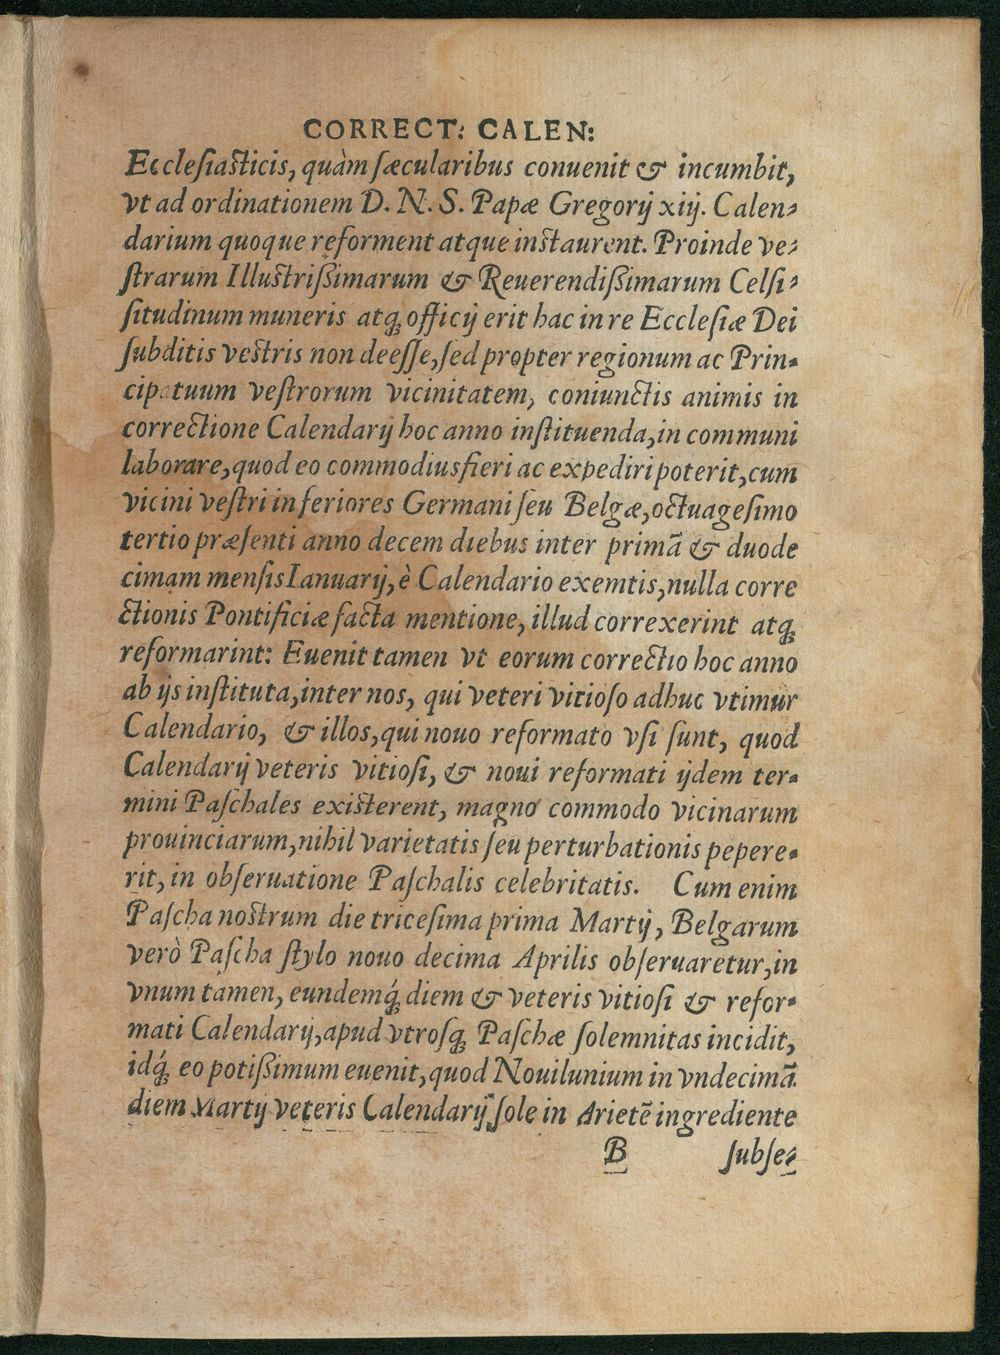 CORRECT: CALEN:
Eccleſiaſticis, quàm ſæcularibus conuenit & incumbit,
vt ad ordinationem D. N. S. Papæ Gregorij xiij. Calen-
darium quoque reforment atque inſtaurent. Proinde ve-
ſtrarum Illuſtriſſimarum & Reuerendiſſimarum Celſi-
ſitudinum muneris atq́ꝫ officij erit hac in re Eccleſiæ Dei
ſubditis veſtris non deeſſe, ſed propter regionum ac Prin-
cipatuum veſtrorum vicinitatem, coniunctis animis in
correctione Calendarij hoc anno inſtituenda, in communi
laborare, quod eo commodius fieri ac expediri poterit, cum
vicini veſtri inferiores Germani ſeu Belgæ, octuageſimo
tertio præſenti anno decem diebus inter primã & duode
cimam menſis Ianuarij, è Calendario exemtis, nulla corre
ctionis Pontificiæ facta mentione, illud correxerint atqꝫ
reformarint: Euenit tamen vt eorum correctio hoc anno
ab ijs inſtituta, inter nos, qui veteri vitioſo adhuc vtimur
Calendario, & illos, qui nouo reformato vſi ſunt, quod
Calendarij veteris vitioſi, & noui reformati ijdem ter-
mini Paſchales exiſterent, magno commodo vicinarum
prouinciarum, nihil varietatis ſeu perturbationis pepere-
rit, in obſeruatione Paſchalis celebritatis. Cum enim
Paſcha noſtrum die triceſima prima Martij, Belgarum
verò Paſcha ſtylo nouo decima Aprilis obſeruaretur, in
vnum tamen, eundemq́ꝫ diem & veteris vitioſi & refor-
mati Calendarij, apud vtroſqꝫ Paſchæ ſolemnitas incidit,
idq́ꝫ eo potiſſimum euenit, quod Nouilunium in vndecimã
diem Martij veteris Calendarij ſole in Arietẽ ingrediente
B ſubſe-